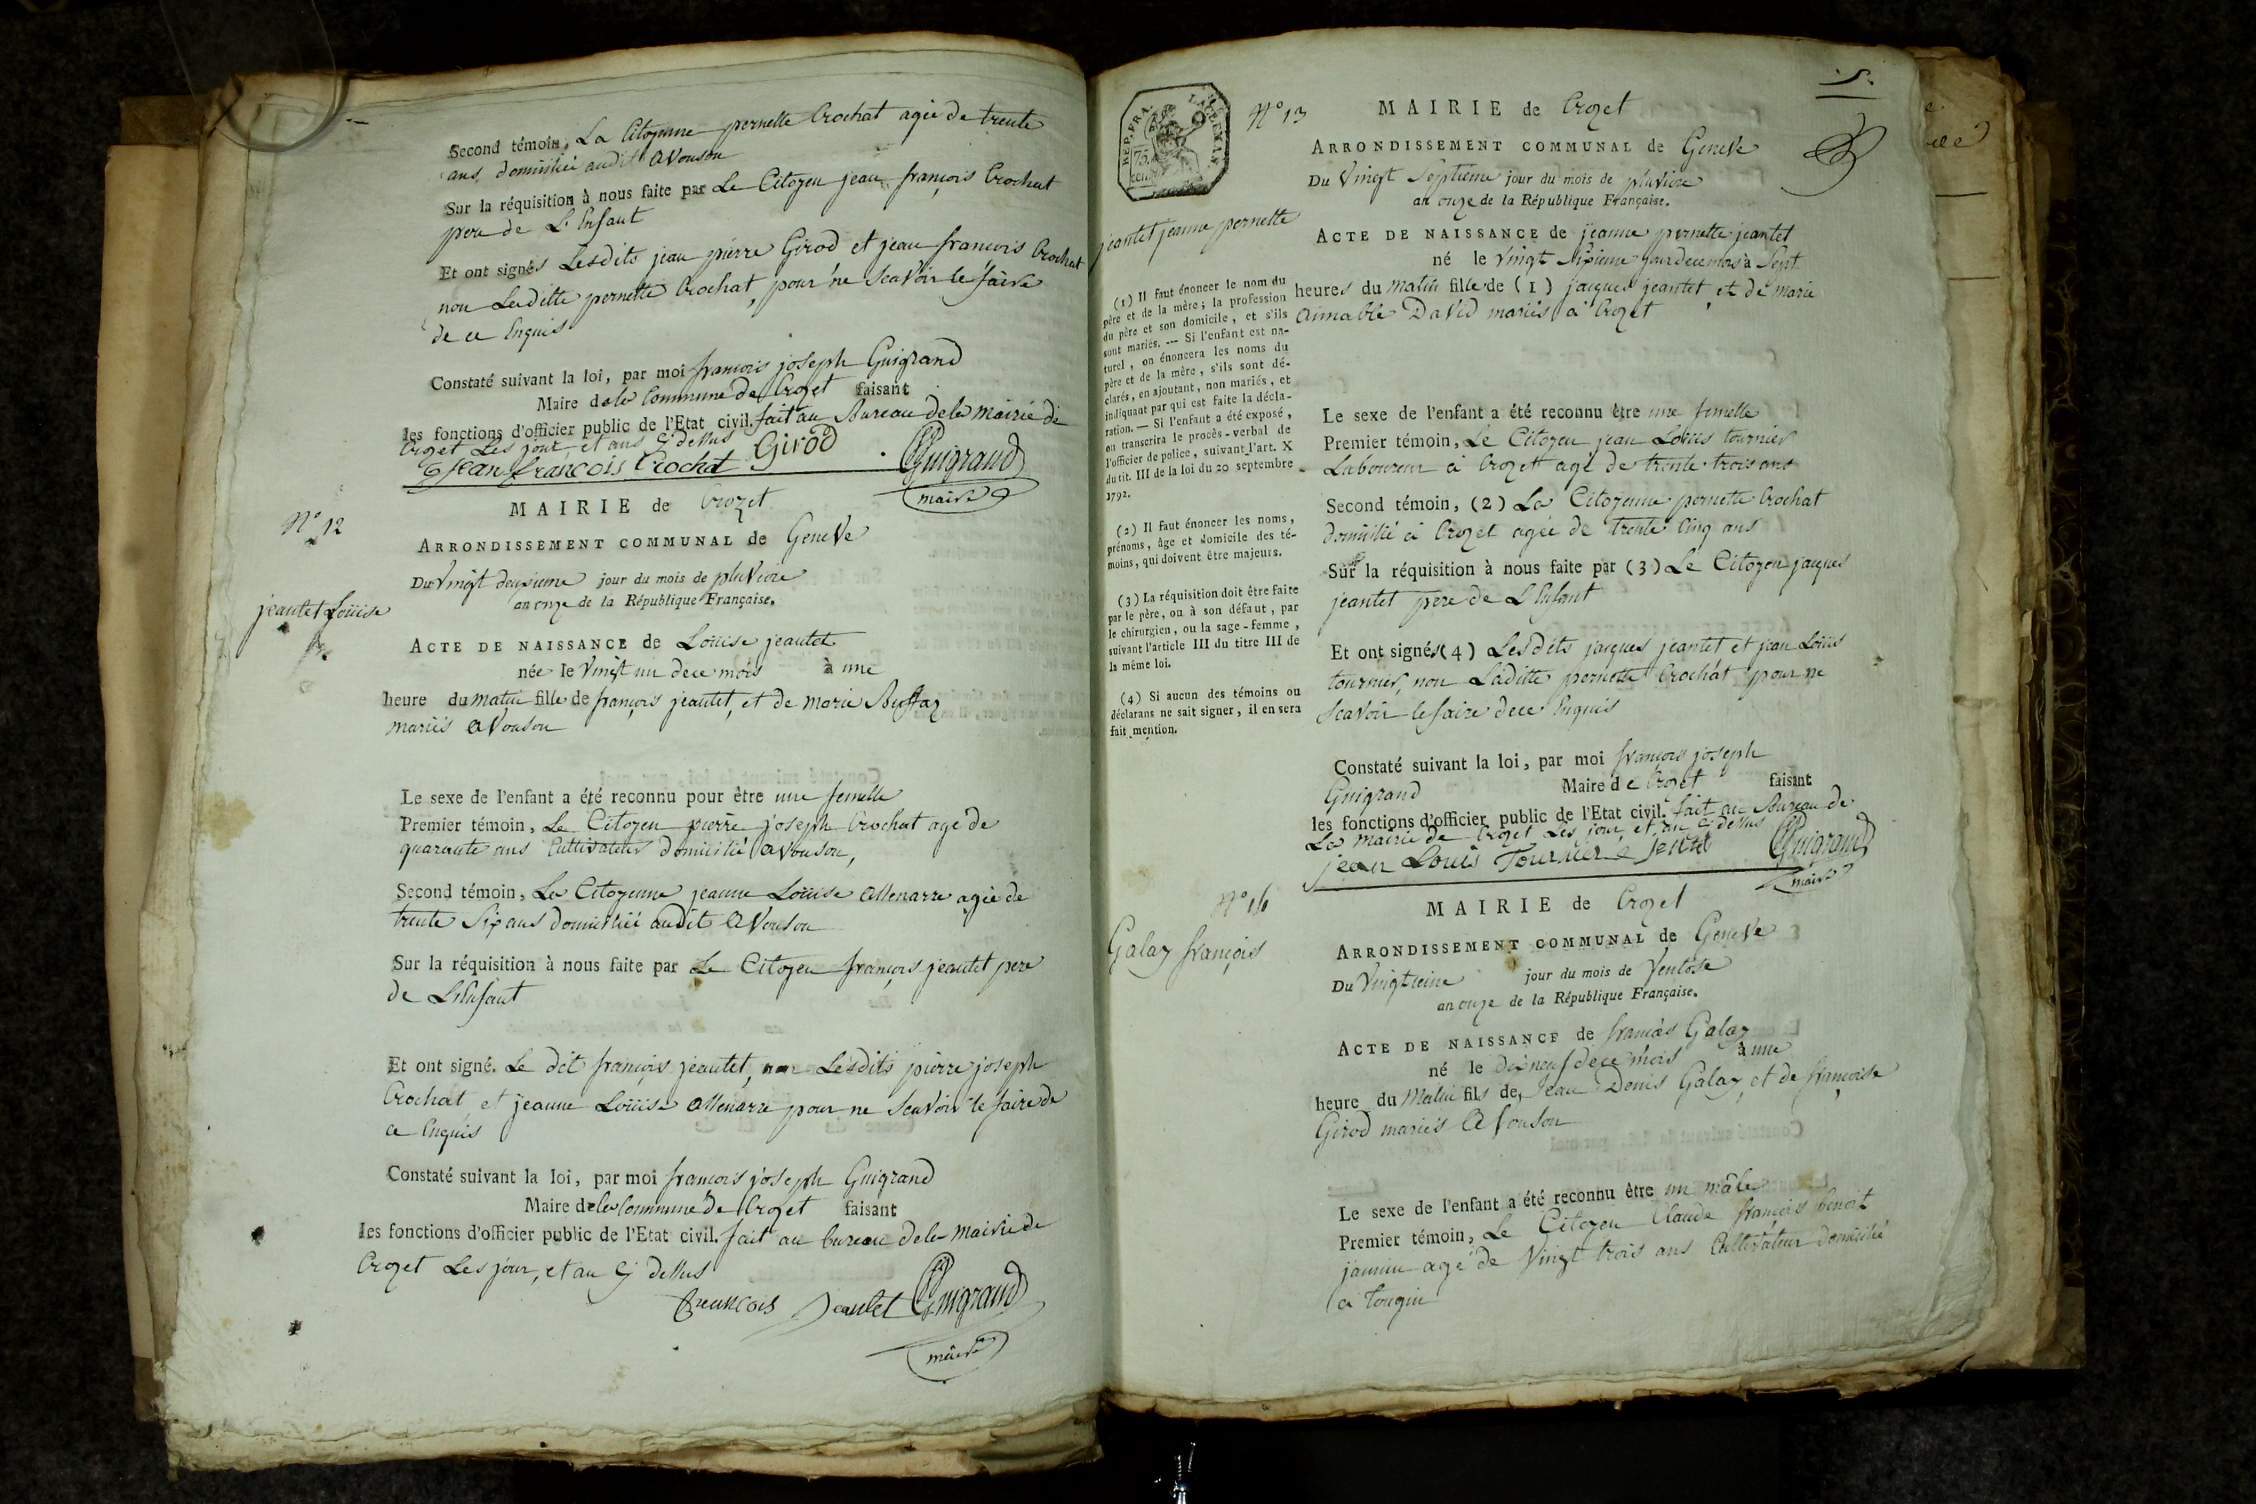 Second témoin, La Citoyenne pernette Crochat agée de trente
ans domiciliée audit Avouson
Sur la réquisition à nous faite par Le Citoyen jean françois Crochat
pere de L'Enfant
Et ont signés Lesdits jean pierre Girod et jean françois Crochat
non Laditte pernette Crochat, pour ne Scavoir le faire
de ce Enquis
Constaté suivant la loi, par moi françois joseph Guigrand
Maire de la Commune de Crozet faisant
les fonctions d'officier public de l'Etat civil. fait au Bureau de la mairie de
Crozet Les jour, et ans Cj dessus Girod
jean françois Crochat Guigrand
maire
N° 12
MAIRIE de Crozet
ARRONDISSEMENT COMMUNAL de Geneve
Du Vingt deuxieme jour du mois de pluviose
an onze de la République Française.
jeantet Loüise
ACTE DE NAISSANCE de Loüise jeantet
née le Vingt un de ce mois à une
heure du matin fille de françois jeantet, et de marie
mariés Avouson
Le sexe de l'enfant a été reconnu pour être une femelle
Premier témoin, Le Citoyen pierre joseph Crochat agé de
quarante ans Cultivateur domicilié Avouson,
Second témoin, La Citoyenne jeanne Loüise allenarre agée de
trente Six ans domiciliée audit Avouson
Sur la réquisition à nous faite par Le Citoyen françois jeantet pere
de L'Enfant
Et ont signé. Le dit françois jeantet, non Lesdits pierre joseph
Crochat, et jeanne Loüise allenarre pour ne Scavoir le faire de
ce Enquis
Constaté suivant la loi, par moi françois joseph Guigrand
Maire de la Commune de Crozet faisant
les fonctions d'officier public de l'Etat civil. fait au bureau de la mairie de
Crozet Les jour, et an Cj dessus
françois Jeantet Guigrand
maire
5.
REP. FRA.
75.
cent
N° 13
MAIRIE de Crozet
ARRONDISSEMENT COMMUNAL de Geneve
Du Vingt Septieme jour du mois de pluviose
an onze de la République Française.
jeantet jeanne pernette
ACTE DE NAISSANCE de jeanne pernette jeantet
né le Vingt Sixieme jour de ce mois à Sept
heures du matin fille de (1) jacques jeantet, et de marie
Aimable David mariés à Crozet
(1) Il faut énoncer le nom du
père et de la mère; la profession
du père et son domicile, et s'ils
sont mariés. — Si l'enfant est na-
turel, on énoncera les noms du
père et de la mère, s'ils sont dé-
clarés, en ajoutant, non mariés, et
indiquant par qui est faite la décla-
ration. — Si l'enfant a été exposé,
on transcrira le procès-verbal de
l'officier de police, suivant l'art. X
du tit. III de la loi du 20 septembre
1792.
(2) Il faut énoncer les noms,
prénoms, âge et domicile des té-
moins, qui doivent être majeurs.
(3) La réquisition doit être faite
par le père, ou à son défaut, par
le chirurgien, ou la sage-femme,
suivant l'article III du titre III de
la même loi.
(4) Si aucun des témoins ou
déclarans ne sait signer, il en sera
fait mention.
Le sexe de l'enfant a été reconnu être une femelle
Premier témoin, Le Citoyen jean Loüis tournier
Laboureur à Crozet agé de trente trois ans
Second témoin, (2) La Citoyenne pernette Crochat
domiciliée à Crozet agée de trente Cinq ans
Sur la réquisition à nous faite par (3) Le Citoyen jacques
jeantet pere de L'Enfant
Et ont signés (4) Lesdits jacques jeantet et jean Loüis
tournier, non Laditte pernette Crochat pour ne
Scavoir le faire de ce Enquis
Constaté suivant la loi, par moi françois joseph
Guigrand Maire de Crozet faisant
les fonctions d'officier public de l'Etat civil. fait au Bureau de
La mairie de Crozet Les jour, et an Cj dessus
jean Louis Tournier Guigrand
maire
N° 14
MAIRIE de Crozet
ARRONDISSEMENT COMMUNAL de Geneve
Galay françois
Du Vingtieme jour du mois de Ventose
an onze de la République Française.
ACTE DE NAISSANCE de françois Galay
né le dixneuf de ce mois à une
heure du Matin fils de, Jean Denis Galay, et de françoise
Girod mariés Avouson
Le sexe de l'enfant a été reconnu être un mâle
Premier témoin, Le Citoyen Claude françois benoit
agé de Vingt trois ans Cultivateur domicilié
a tougin